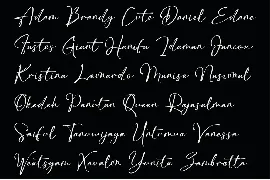 Adam Brandy Cute Daniel Edane
Justes Grant Hanifu Idaman Juncox
Kristina Leonardo Munisa Nasional
Okadah Panitan Queen Rajasulman
Saiful Tanuwijaya Untumua Vanassa
Westsyam Xavalon Yunita Zambretta